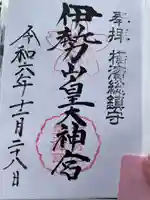 奉拝 横濱総鎮守
伊勢山皇大神宮
令和六年十二月二十八日